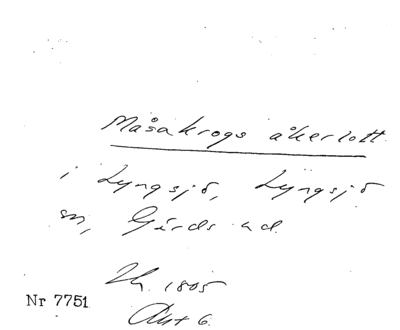 Måsakrogs åkerlott
i Lyngsjö, Lyngsjö
sn, Gärds hd.
1805
Nr 7751
Akt 6.